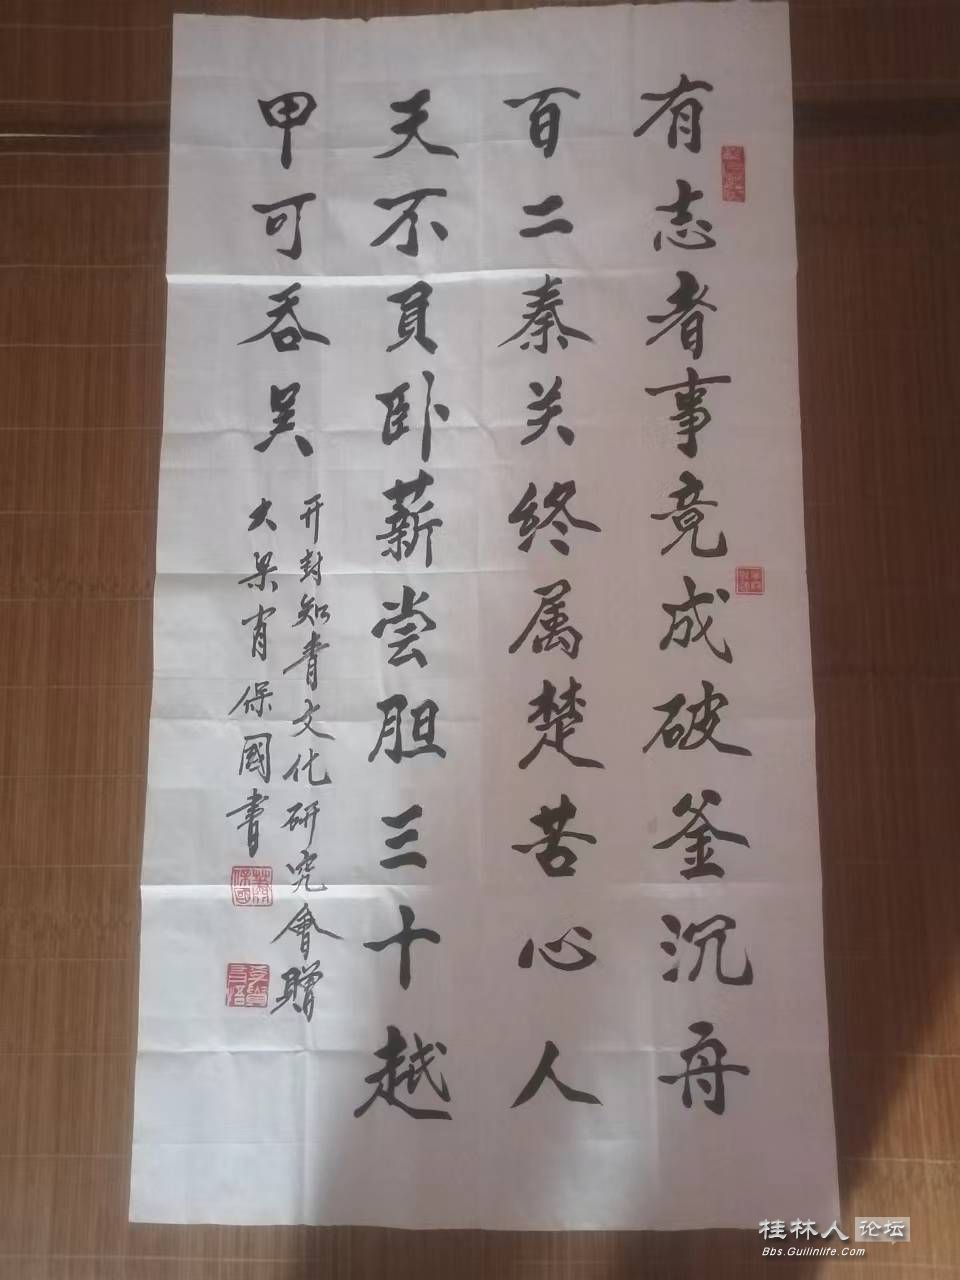 有志者事竟成破釜沉舟
百二秦关终属楚苦心人
天不負卧薪尝胆三十越
甲可吞吴
开封知青文化研究會贈
大梁肖保國書
桂林人论坛
Bbs.Guilinlife.Com